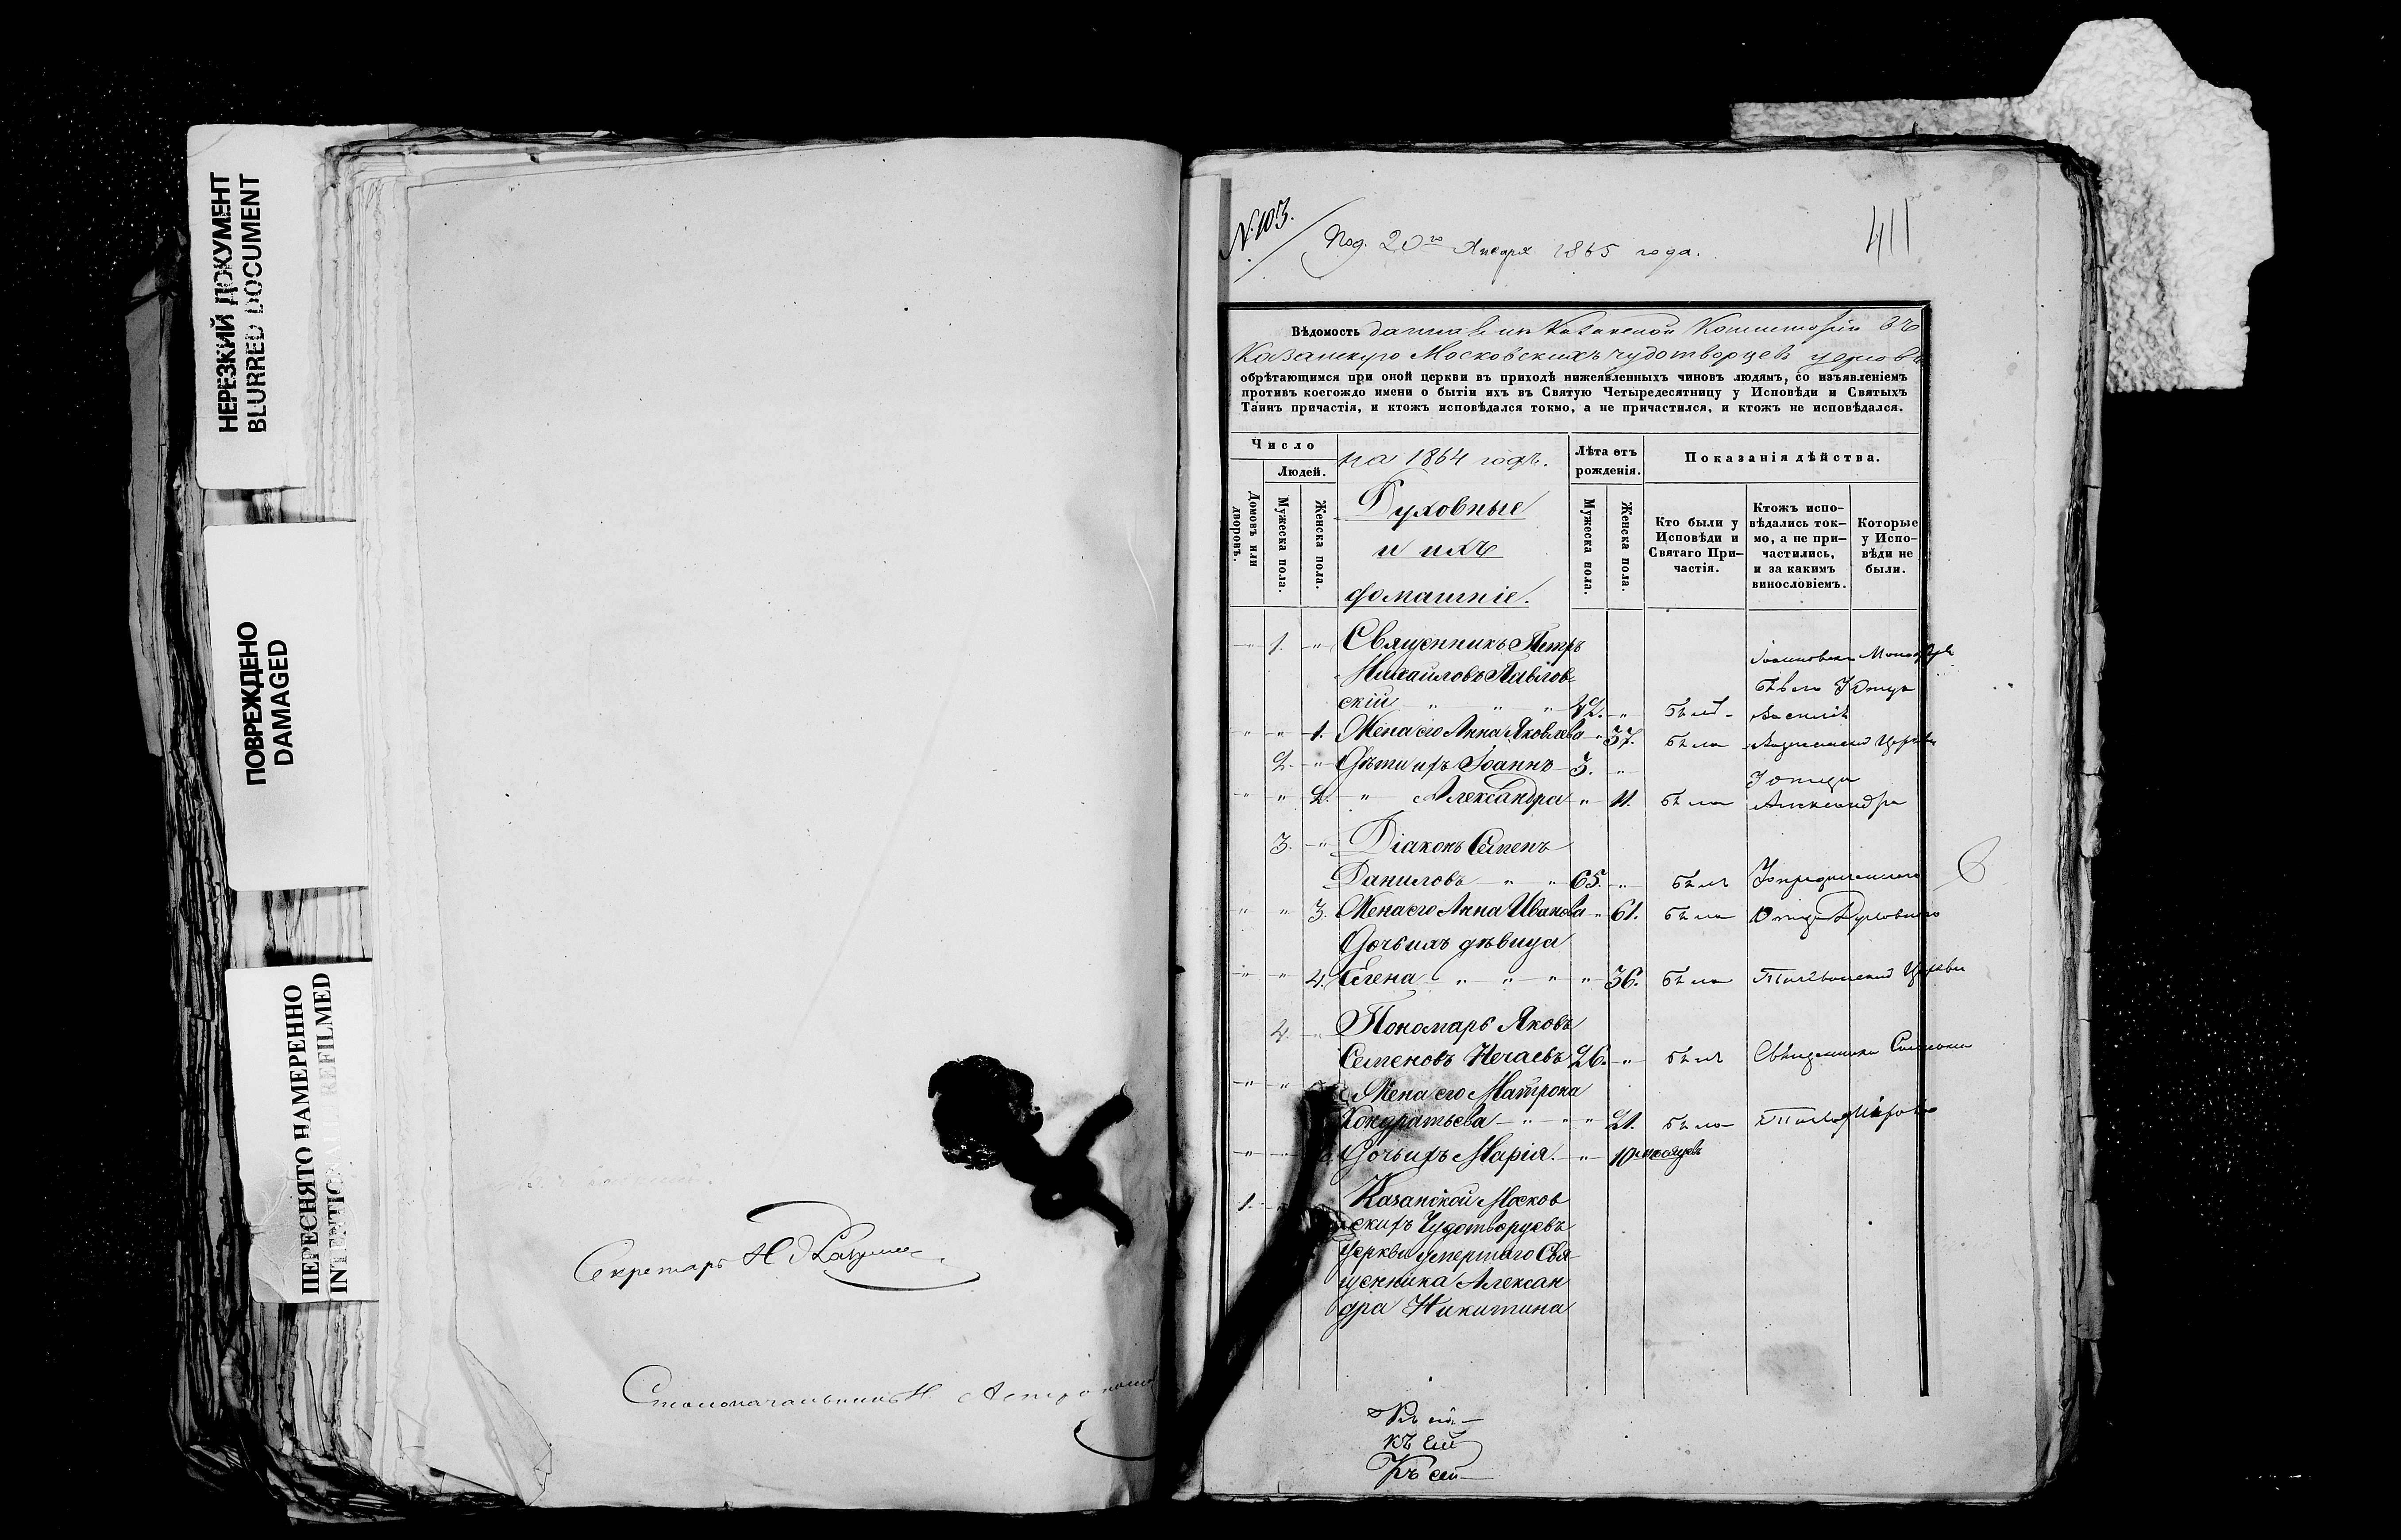 НЕРЕЗКИЙ ДОКУМЕНТ
BLURRED DOCUMENT
ПОВРЕЖДЕНО
DAMAGED
ПЕРЕСНЯТО НАМЕРЕННО
INTENTIONALLY REFILMED
Секретарь Н
Столоначальникъ Н.
№ 103.
Под. 20го Января 1865 года.
411
Вѣдомость данная изъ Казанской Консисторіи въ
Казанскую Московскихъ чудотворцевъ церковь
обрѣтающимся при оной церкви въ приходѣ нижеявленныхъ чиновъ людямъ, со изъявленіемъ
противъ коегождо имени о бытіи ихъ въ Святую Четыредесятницу у Исповѣди и Святыхъ
Таинъ причастія, и ктожъ исповѣдался токмо, а не причастился, и ктожъ не исповѣдался.
Число
Людей.
Домовъ или дворовъ.
Мужеска пола.
Женска пола.
на 1864 годъ.
Духовные
и ихъ
домашніе.
Лѣта отъ рожденія.
Мужеска пола.
Женска пола.
Показанія дѣйства.
Кто были у Исповѣди и Святаго При-частія.
Ктожъ испо-вѣдались ток-мо, а не при-частились, и за какимъ винословіемъ.
Которые у Испо-вѣди не были.
1. Священникъ Петръ
Михайловъ Павлов-
скій 42. былъ Василія
1. Жена его Анна Яковлева 37. была Церкви
2. Дѣти ихъ Іоаннъ 3.
2. Александра 11. была Александра
3. Діаконъ Семенъ
Даниловъ 65. былъ
3. Жена его Анна Иванова 61. была
Дочь ихъ дѣвица
4. Елена 36. была Церкви
4. Пономарь Яковъ
Семеновъ Нечаевъ 26. былъ Священника
Жена его Матрона
Кондратьева 21. была
Дочь ихъ Марія. 10 месяцевъ
1. Казанской Москов
скихъ Чудотворцевъ
церкви умершаго Свя-
щенника Алексан
дра Никитина
Къ сей
къ сей
Къ сей